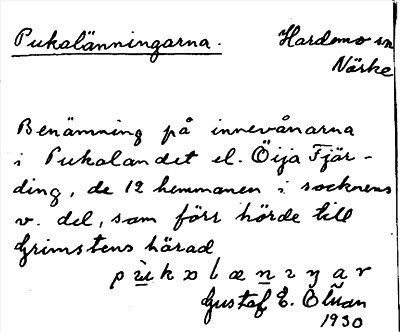 Pukalänningarna.
Hardemo sn
Närke
Benämning på innevånarna
i Pukalandet el. Öija Fjär-
ding, de 12 hemmanen i socknens
v. del, som förr hörde till
Grimstens härad
Gustaf E. Olsson
1930